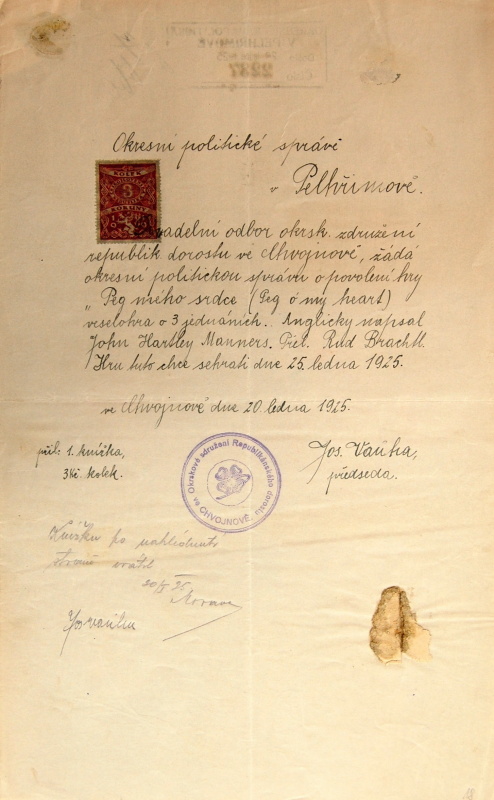 2237
Okresní politické správě
v Pelhřimově.
KOLEK
3
KORUNY
1919
Divadelní odbor okrsk. združení
republik dorostu ve Chvojnově, žádá
okresní politickou správu o povolení hry
„Peg mého srdce (Peg o' my heart)
veselohra o 3 jednáních. Anglicky napsal
John Hartley Manners. Přel. Rud Brachtl.
Hru tuto chce sehrati dne 25. ledna 1925.
ve Chvojnově dne 20. ledna 1925.
příl: 1. knížka,
3Kč. kolek.
Okrskové sdružení Republikánského dorostu
ve CHVOJNOVĚ.
Jos. Vaňha,
předseda.
Knížku po nahlédnutí
vrátil
Jos Vaňha